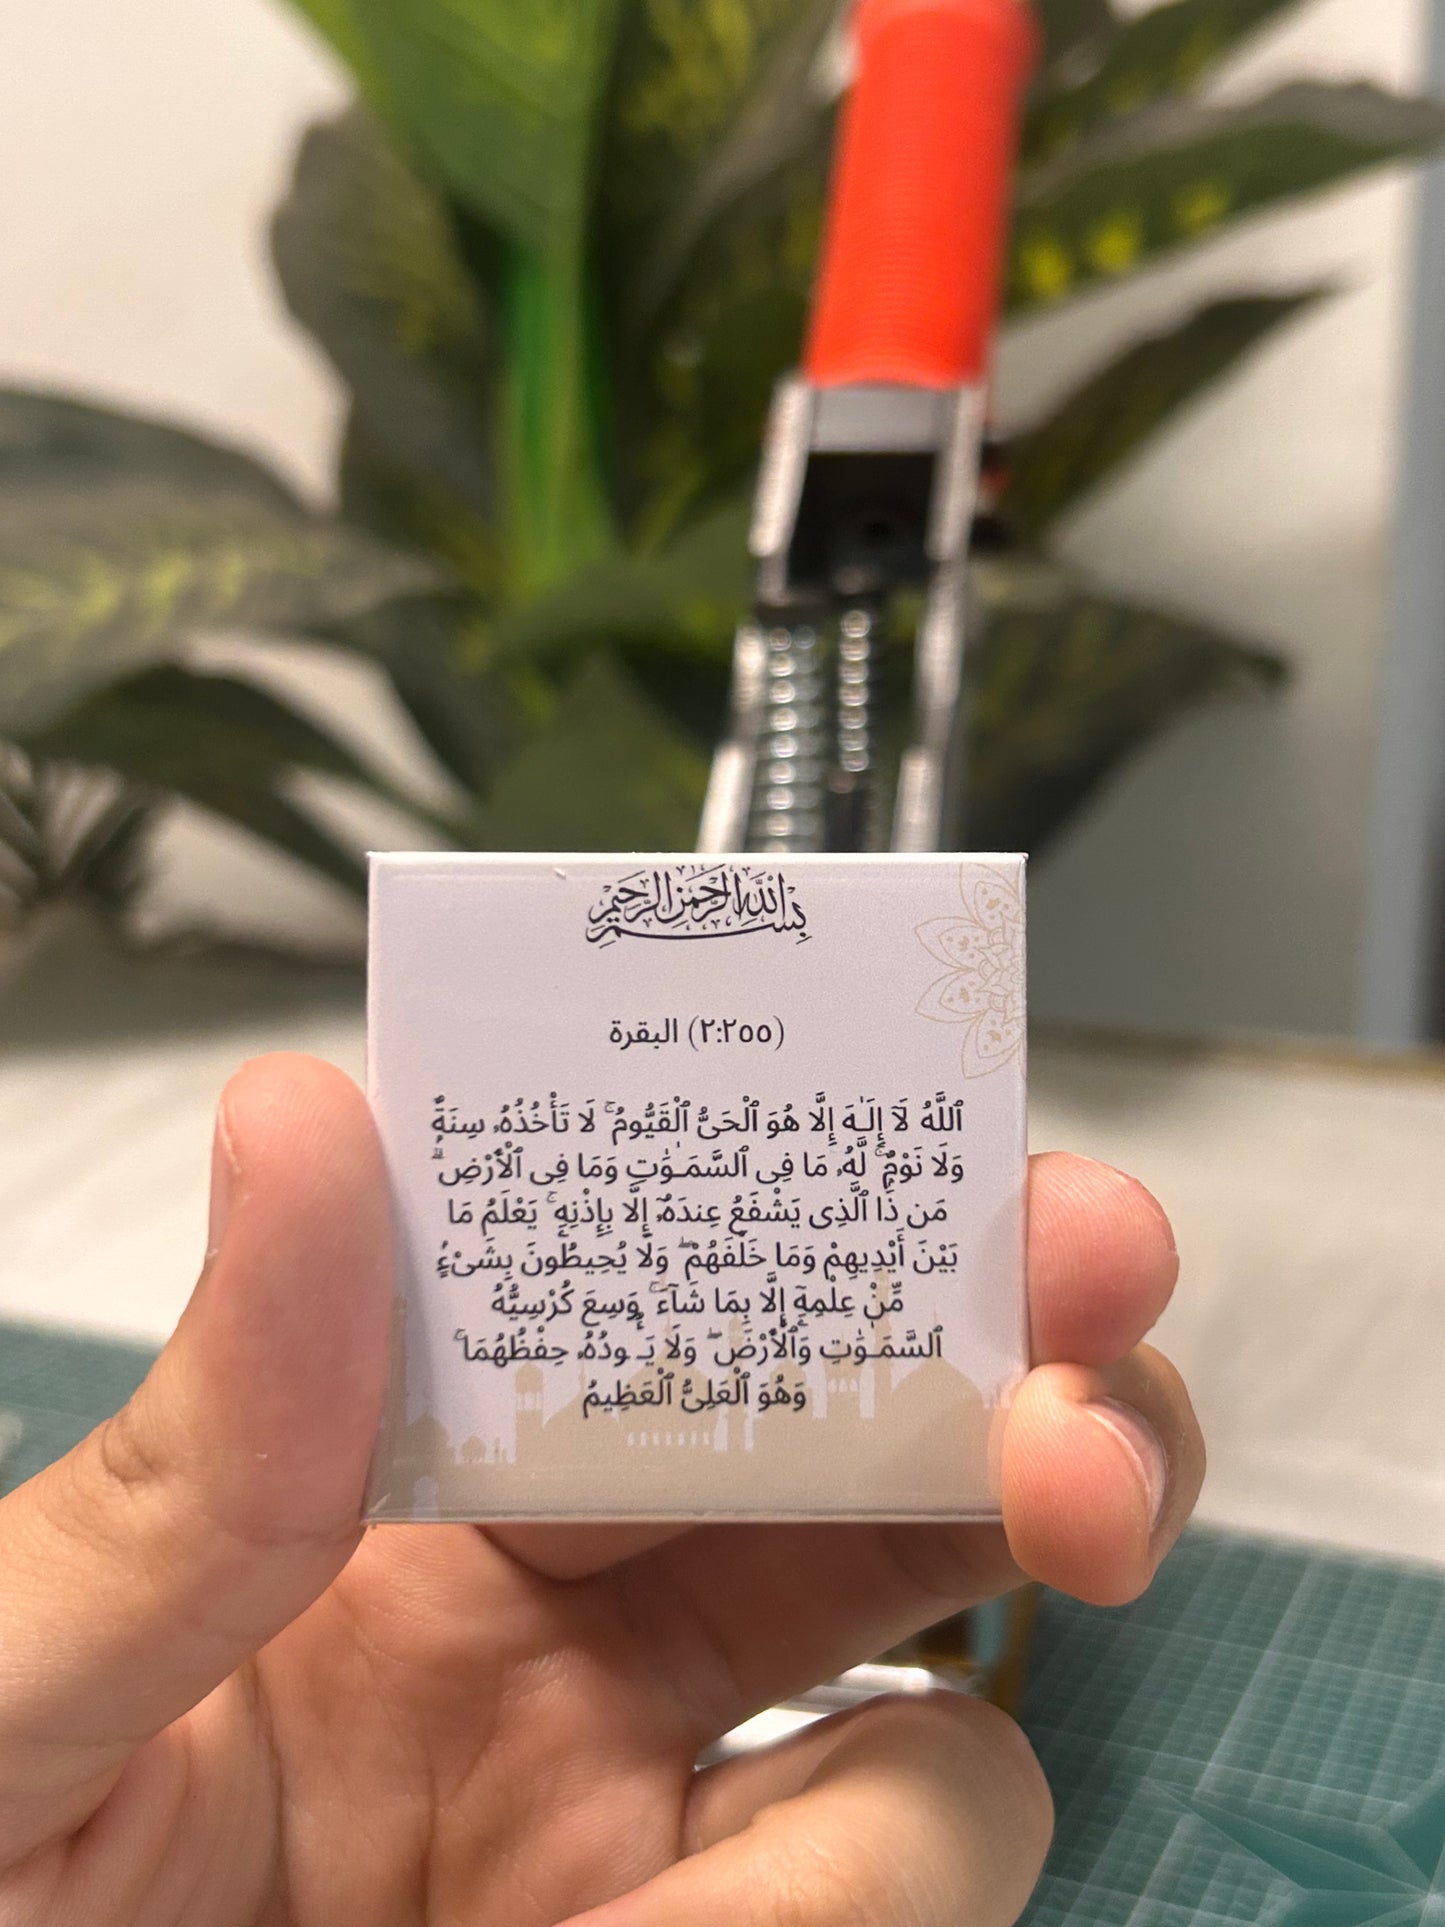 بِسْمِ اللَّهِ الرَّحْمَٰنِ الرَّحِيمِ
(٢:٢٥٥) البقرة
ٱللَّهُ لَآ إِلَـٰهَ إِلَّا هُوَ ٱلْحَىُّ ٱلْقَيُّومُ ۚ لَا تَأْخُذُهُۥ سِنَةٌۭ
وَلَا نَوْمٌۭ ۚ لَّهُۥ مَا فِى ٱلسَّمَـٰوَٰتِ وَمَا فِى ٱلْأَرْضِ ۗ
مَن ذَا ٱلَّذِى يَشْفَعُ عِندَهُۥٓ إِلَّا بِإِذْنِهِۦ ۚ يَعْلَمُ مَا
بَيْنَ أَيْدِيهِمْ وَمَا خَلْفَهُمْ ۖ وَلَا يُحِيطُونَ بِشَىْءٍۢ
مِّنْ عِلْمِهِۦٓ إِلَّا بِمَا شَآءَ ۚ وَسِعَ كُرْسِيُّهُ
ٱلسَّمَـٰوَٰتِ وَٱلْأَرْضَ ۖ وَلَا يَـُٔودُهُۥ حِفْظُهُمَا ۚ
وَهُوَ ٱلْعَلِىُّ ٱلْعَظِيمُ